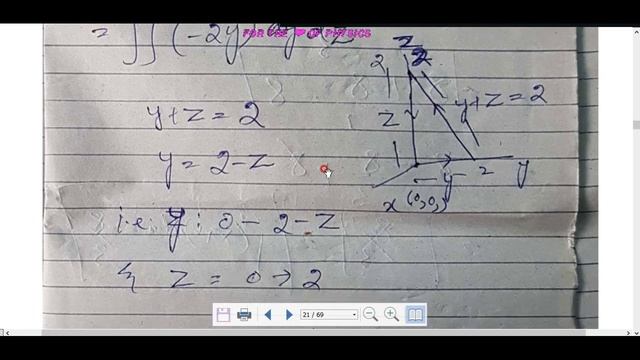 = ∬ (-2y) dy dz
FOR THE ❤ OF PHYSICS
y+z = 2
y = 2-z
i.e. y : 0 - 2-z
& z = 0 → 2
z
2
2
z
y+z=2
y
2
y
x (0,0,)
21 / 69